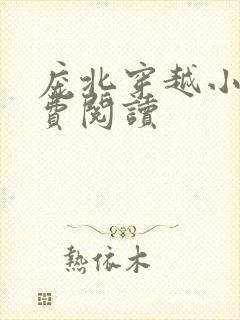 庇北穿越小
費閱讀
熱依木